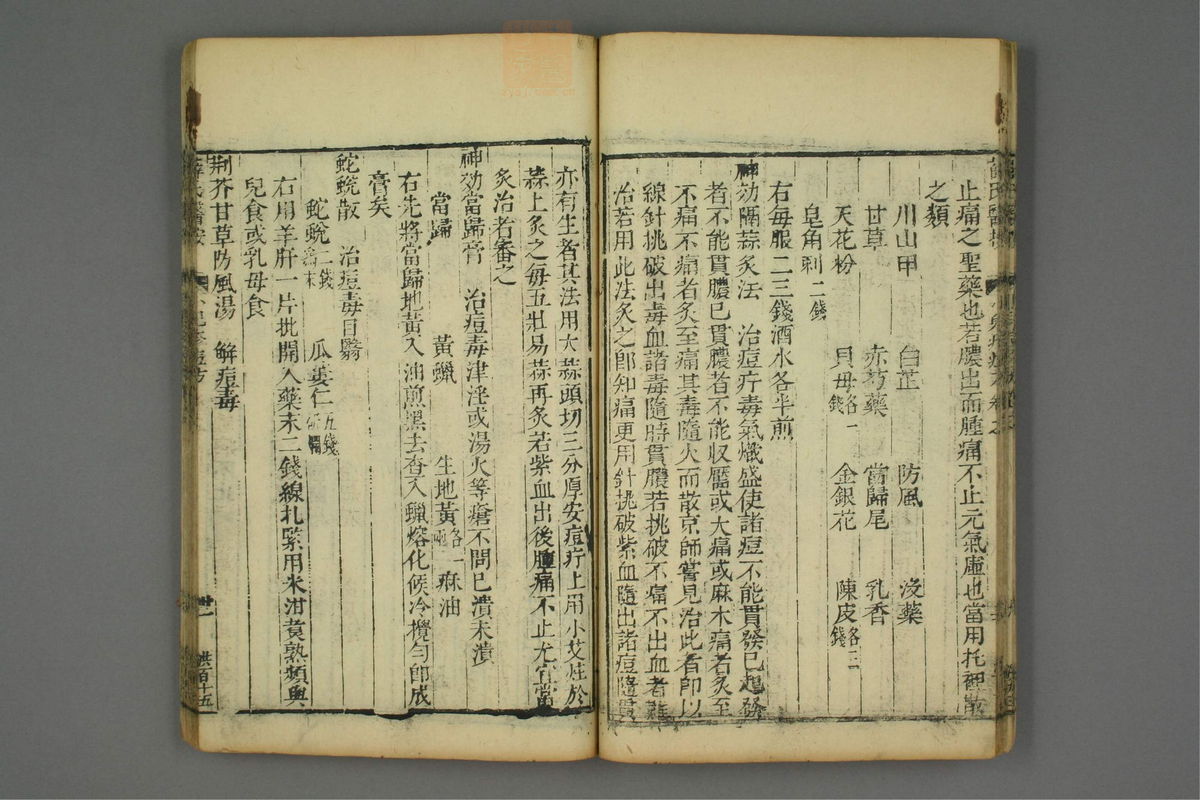 止痛之聖藥也若膿出而腫痛不止元氣虛也當用托裡散
之類
川山甲 白芷 防風 沒藥
甘草 赤芍藥 當歸尾 乳香
天花粉 貝母各一錢 金銀花 陳皮各三錢
皂角刺二錢
右每服二三錢酒水各半煎
神効隔蒜灸法 治痘疔毒氣熾盛使諸痘不能貫發已起發
者不能貫膿已貫膿者不能收靨或大痛或麻木痛者灸至
不痛不痛者灸至痛其毒隨火而散京師嘗見治此者即以
線針挑破出毒血諸毒隨時貫膿若挑破不痛不出血者難
治若用此法灸之即知痛更用針挑破紫血隨出諸痘隨貫
亦有生者其法用大蒜頭切三分厚安痘疔上用小艾炷於
蒜上灸之每五壯易蒜再灸若紫血出後腫痛不止尤宜當
灸治者審之
神効當歸膏 治痘毒津淫或湯火等瘡不問已潰未潰
當歸 黃蠟 生地黃各一兩 麻油
右先將當歸地黃入油煎黑去查入蠟熔化候冷攪勻即成
膏矣
蛇蛻散 治痘毒目翳
蛇蛻二錢為末 瓜蔞仁五錢研爛
右用羊肝一片批開入藥末二錢線扎緊用米泔煑熟頻與
兒食或乳母食
荆芥甘草防風湯 解痘毒
薛氏醫按
廿一
洪百十五